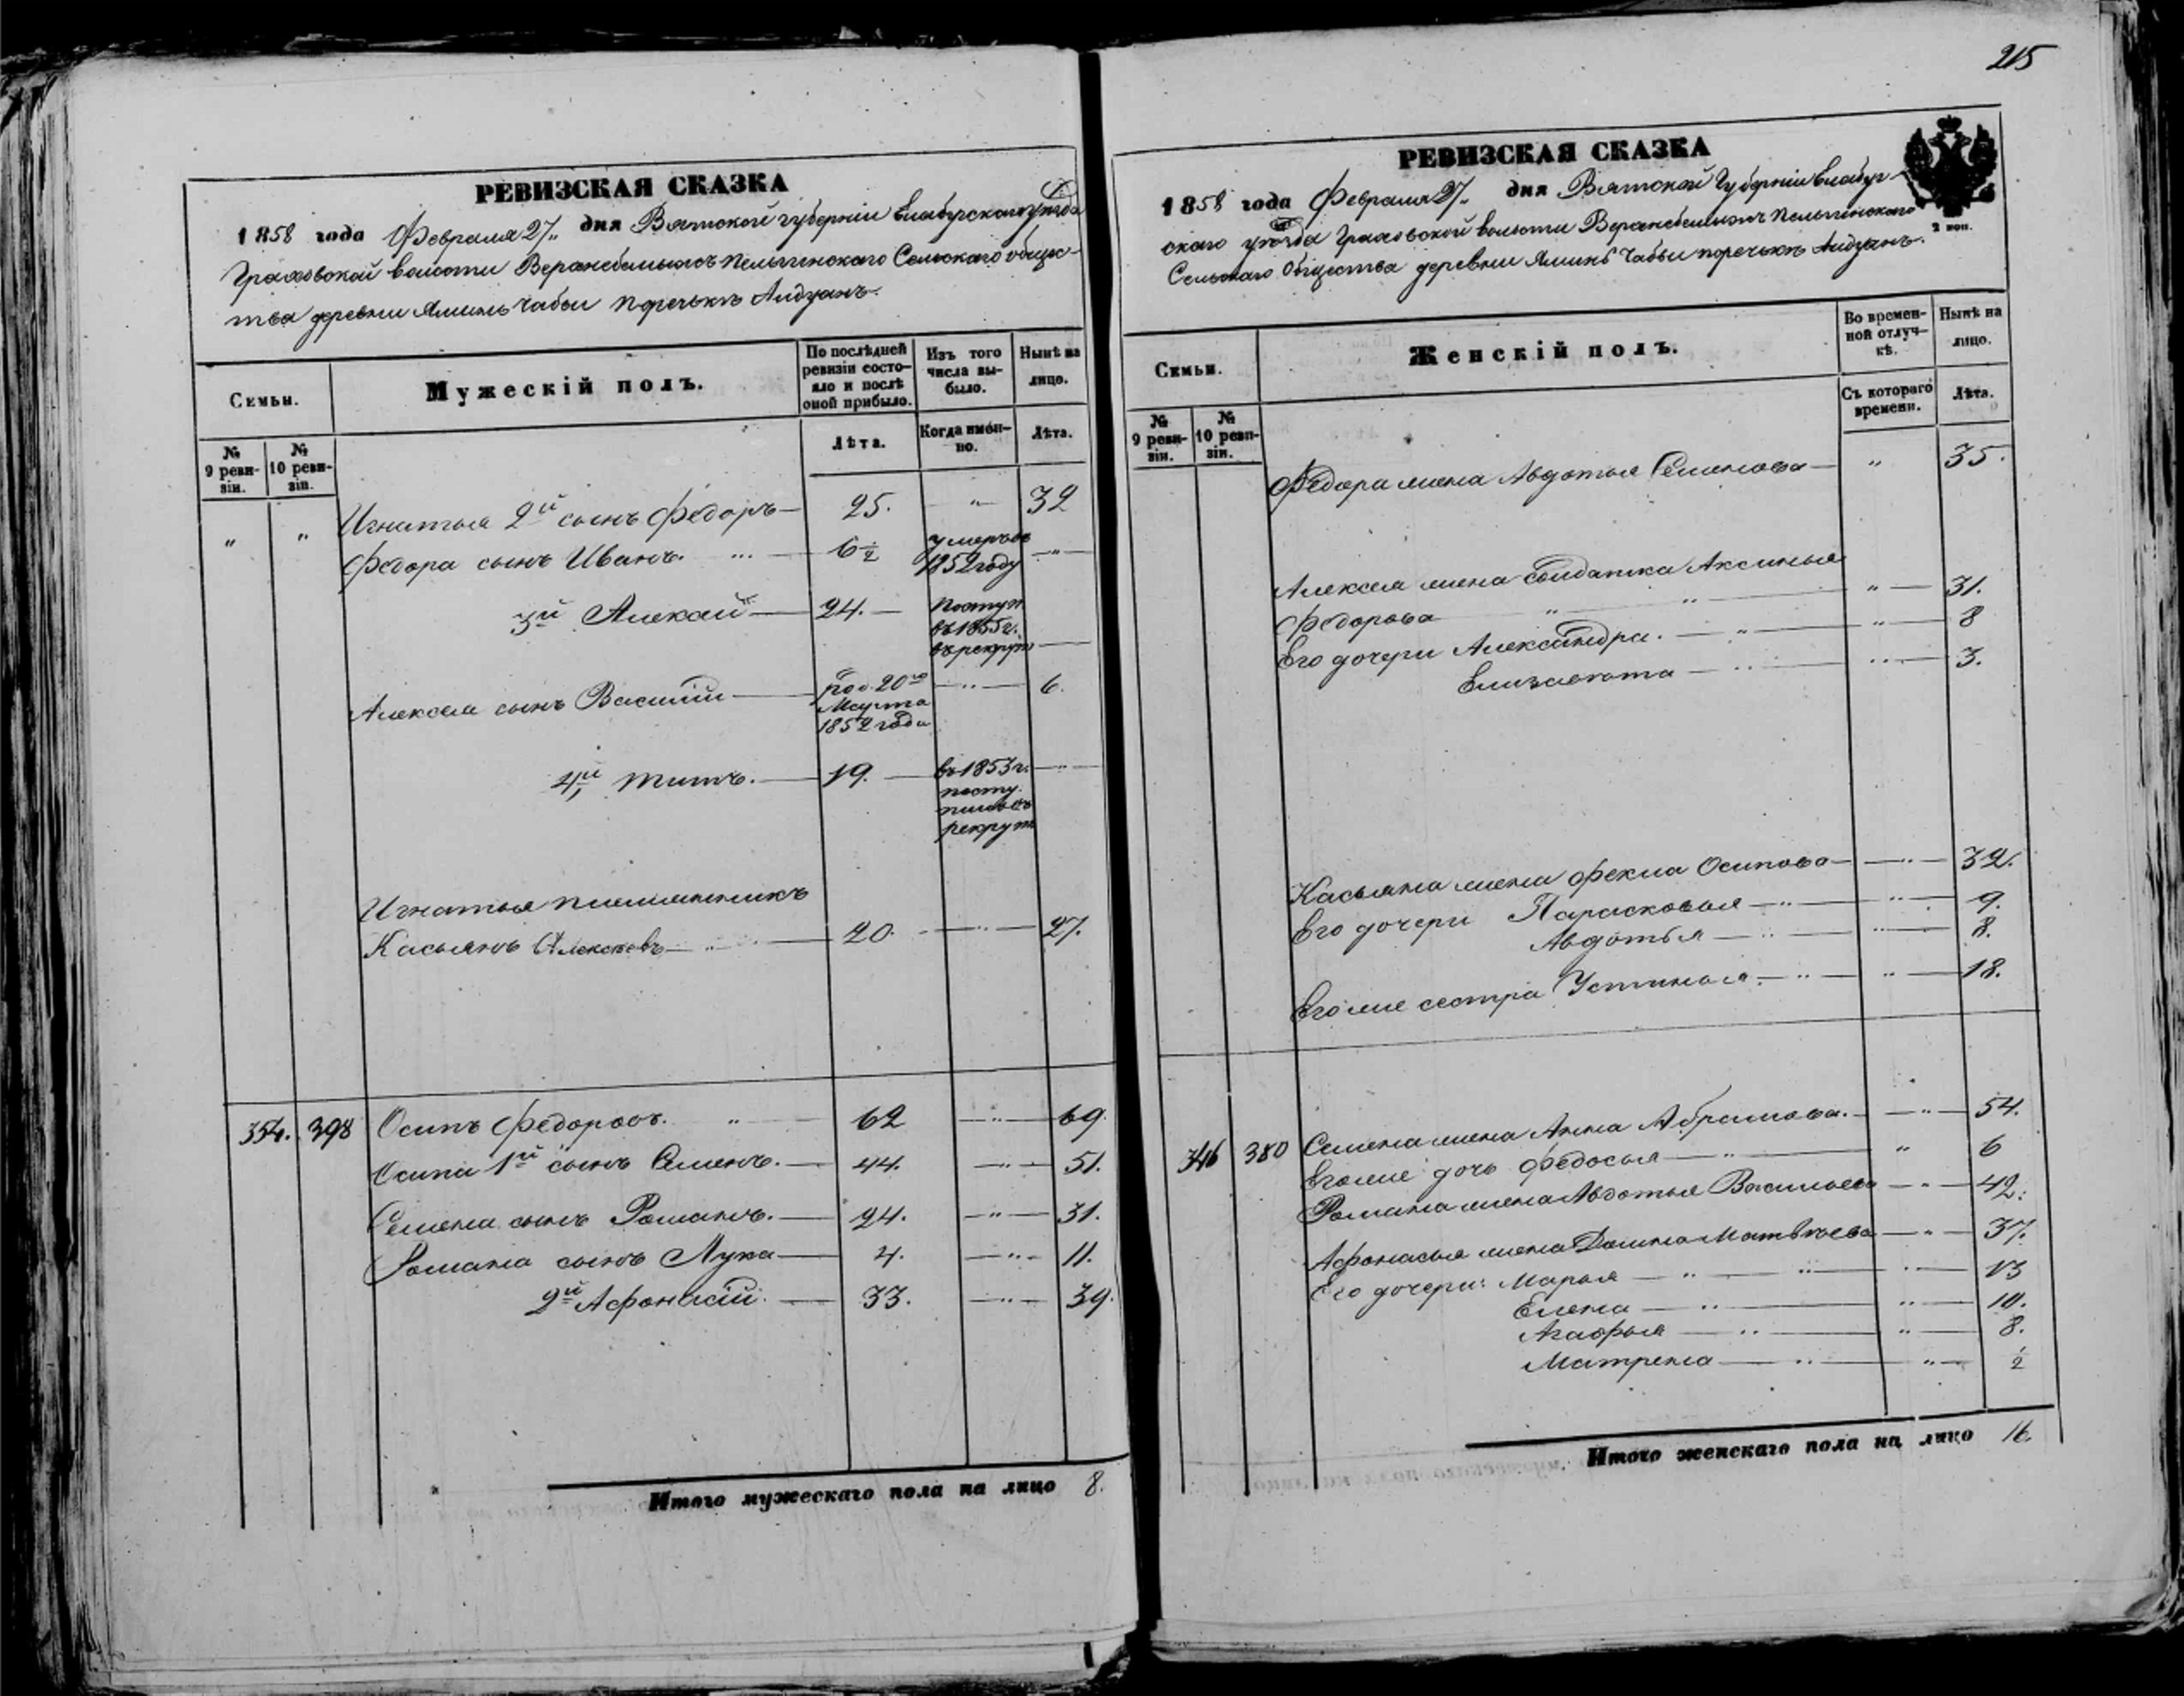 215
РЕВИЗСКАЯ СКАЗКА
1858 года Февраля 27" дня Вятской губерніи Елабугскаго уѣзда
Граховской волости Верхнебемыжъ Пельгинскаго Сельскаго общес-
тва деревни Яминъ Чабьи поречькѣ Аидуанъ.
Семьи.
Мужескій полъ.
По послѣдней ревизіи состо-
яло и послѣ оной прибыло.
Изъ того числа вы-
было.
Нынѣ на лицо.
№ 9 реви-
зіи.
№ 10 реви-
зіи.
Лѣта.
Когда имен-
но.
Лѣта.
" " Игнатья 2й сынъ Федоръ — 25. — " — 32
Федора сынъ Иванъ. ... — 6 1/2 умеръ въ 1852 году — " —
3й Алексѣй — 24. — поступ. въ 1855 г. въ рекрут —
Алексея сынъ Василій — род. 20го Марта 1852 года — " — 6.
4й Титъ. — 19. — въ 1853 г. посту-
пилъ въ рекрут — " —
Игнатья племянникъ
Касьянъ Алексѣевъ — " — 20. — " — 27.
354. 398 Осипъ Федоровъ. " — 62 — " — 69.
Осипа 1й сынъ Семенъ. — 44. — " — 51.
Семена сынъ Романъ. — 24. — " — 31.
Романа сынъ Лука — 4. — " — 11.
2й Афонасій. — 33. — " — 39.
Итого мужескаго пола на лицо 8.
РЕВИЗСКАЯ СКАЗКА
2 коп.
1858 года Февраля 27" дня Вятской Губерніи Елабуг-
скаго уѣзда Граховской волости Верхнебемыжъ Пельгинскаго
Сельскаго Общества деревни Яминъ Чабьи поречькѣ Аидуанъ.
Семьи.
Женскій полъ.
Во времен-
ной отлуч-
кѣ.
Нынѣ на лицо.
№ 9 реви-
зіи.
№ 10 реви-
зіи.
Съ котораго времени.
Лѣта.
Федора жена Авдотья Семенова — " 35.
Алексея жена солдатка Аксинья
Федорова " " — " — 31.
Его дочери Александра. — " — " — 8
Елизавета — " — " — 3.
Касьяна жена Фекла Осипова — " — 32.
Его дочери Парасковья — " — " 9.
Авдотья — " — " — 8.
Его же сестра Устинья. — " — " — 18.
346 380 Семена жена Анна Абрамова. — " — 54.
Его же дочь Федосья — " — " 6
Романа жена Авдотья Васильева — " — 42.
Афонасья жена Домна Матвѣева — " — 37.
Его дочери: Марья — " — " — " — 13
Елена — " — " — 10.
Агафья — " — " — 8.
Матрена — " — " — 1/2
Итого женскаго пола на лицо 16.